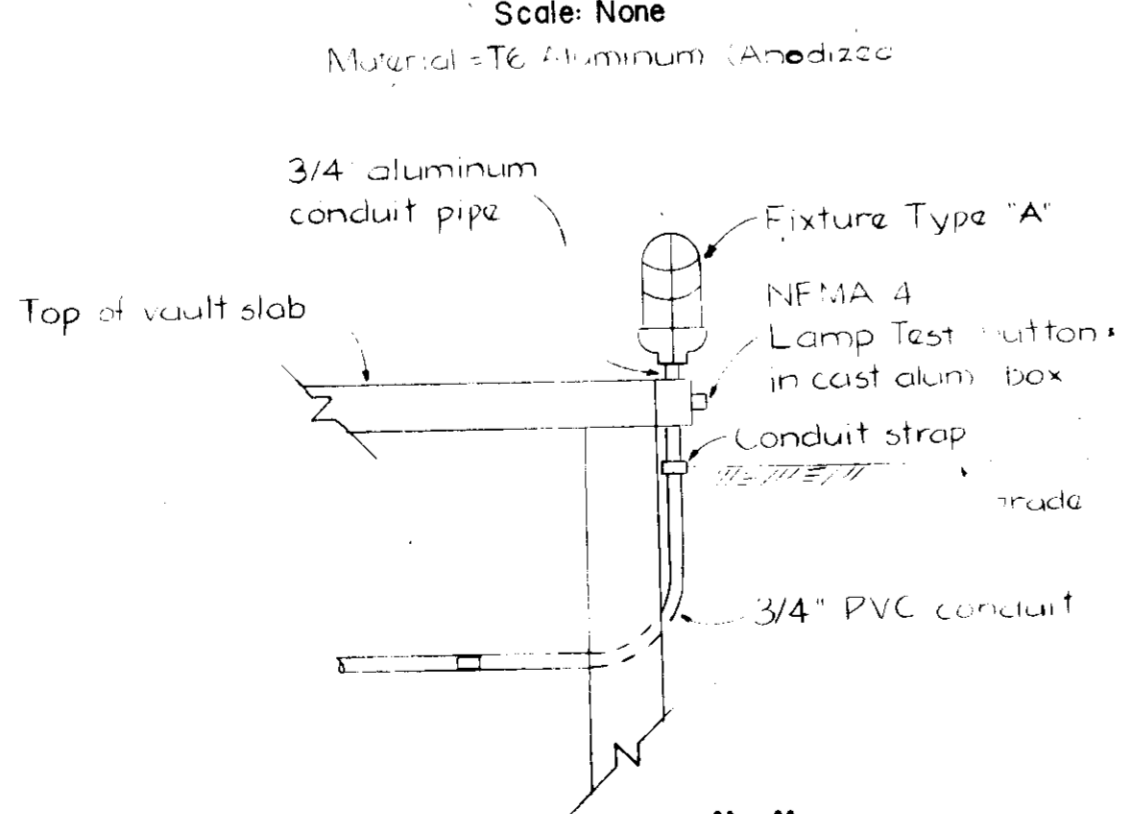 Scale: None
Material = T6 Aluminum (Anodized
3/4 aluminum
conduit pipe
Fixture Type "A"
Top of vault slab
NEMA 4
Lamp Test utton
in cast alum box
Conduit strap
rade
3/4" PVC conduit